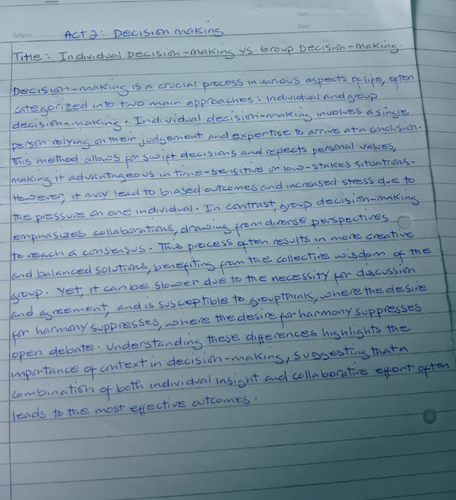 Act 2: Decision making
Title: Individual Decision-making vs. Group Decision-making.
Decision-making is a crucial process in various aspects of life, often
categorized into two main approaches: individual and group
decision-making. Individual decision-making involves a single
person relying on their judgement and expertise to arrive at a conclusion.
This method allows for swift decisions and reflects personal values,
making it advantageous in time-sensitive or low-stakes situations.
However, it may lead to biased outcomes and increased stress due to
the pressure on one individual. In contrast, group decision-making
emphasizes collaborations, drawing from diverse perspectives
to reach a consensus. This process often results in more creative
and balanced solutions, benefiting from the collective wisdom of the
group. Yet, it can be slower due to the necessity for discussion
and agreement, and is susceptible to groupthink, where the desire
for harmony suppresses, where the desire for harmony suppresses
open debate. Understanding these differences highlights the
importance of context in decision-making, suggesting that a
combination of both individual insight and collaborative effort often
leads to the most effective outcomes.